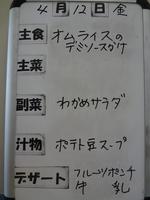 4月12日金
主食 オムライスの
デミソースがけ
主菜
副菜 わかめサラダ
汁物 ポテト豆スープ
デザート フルーツポンチ
牛乳